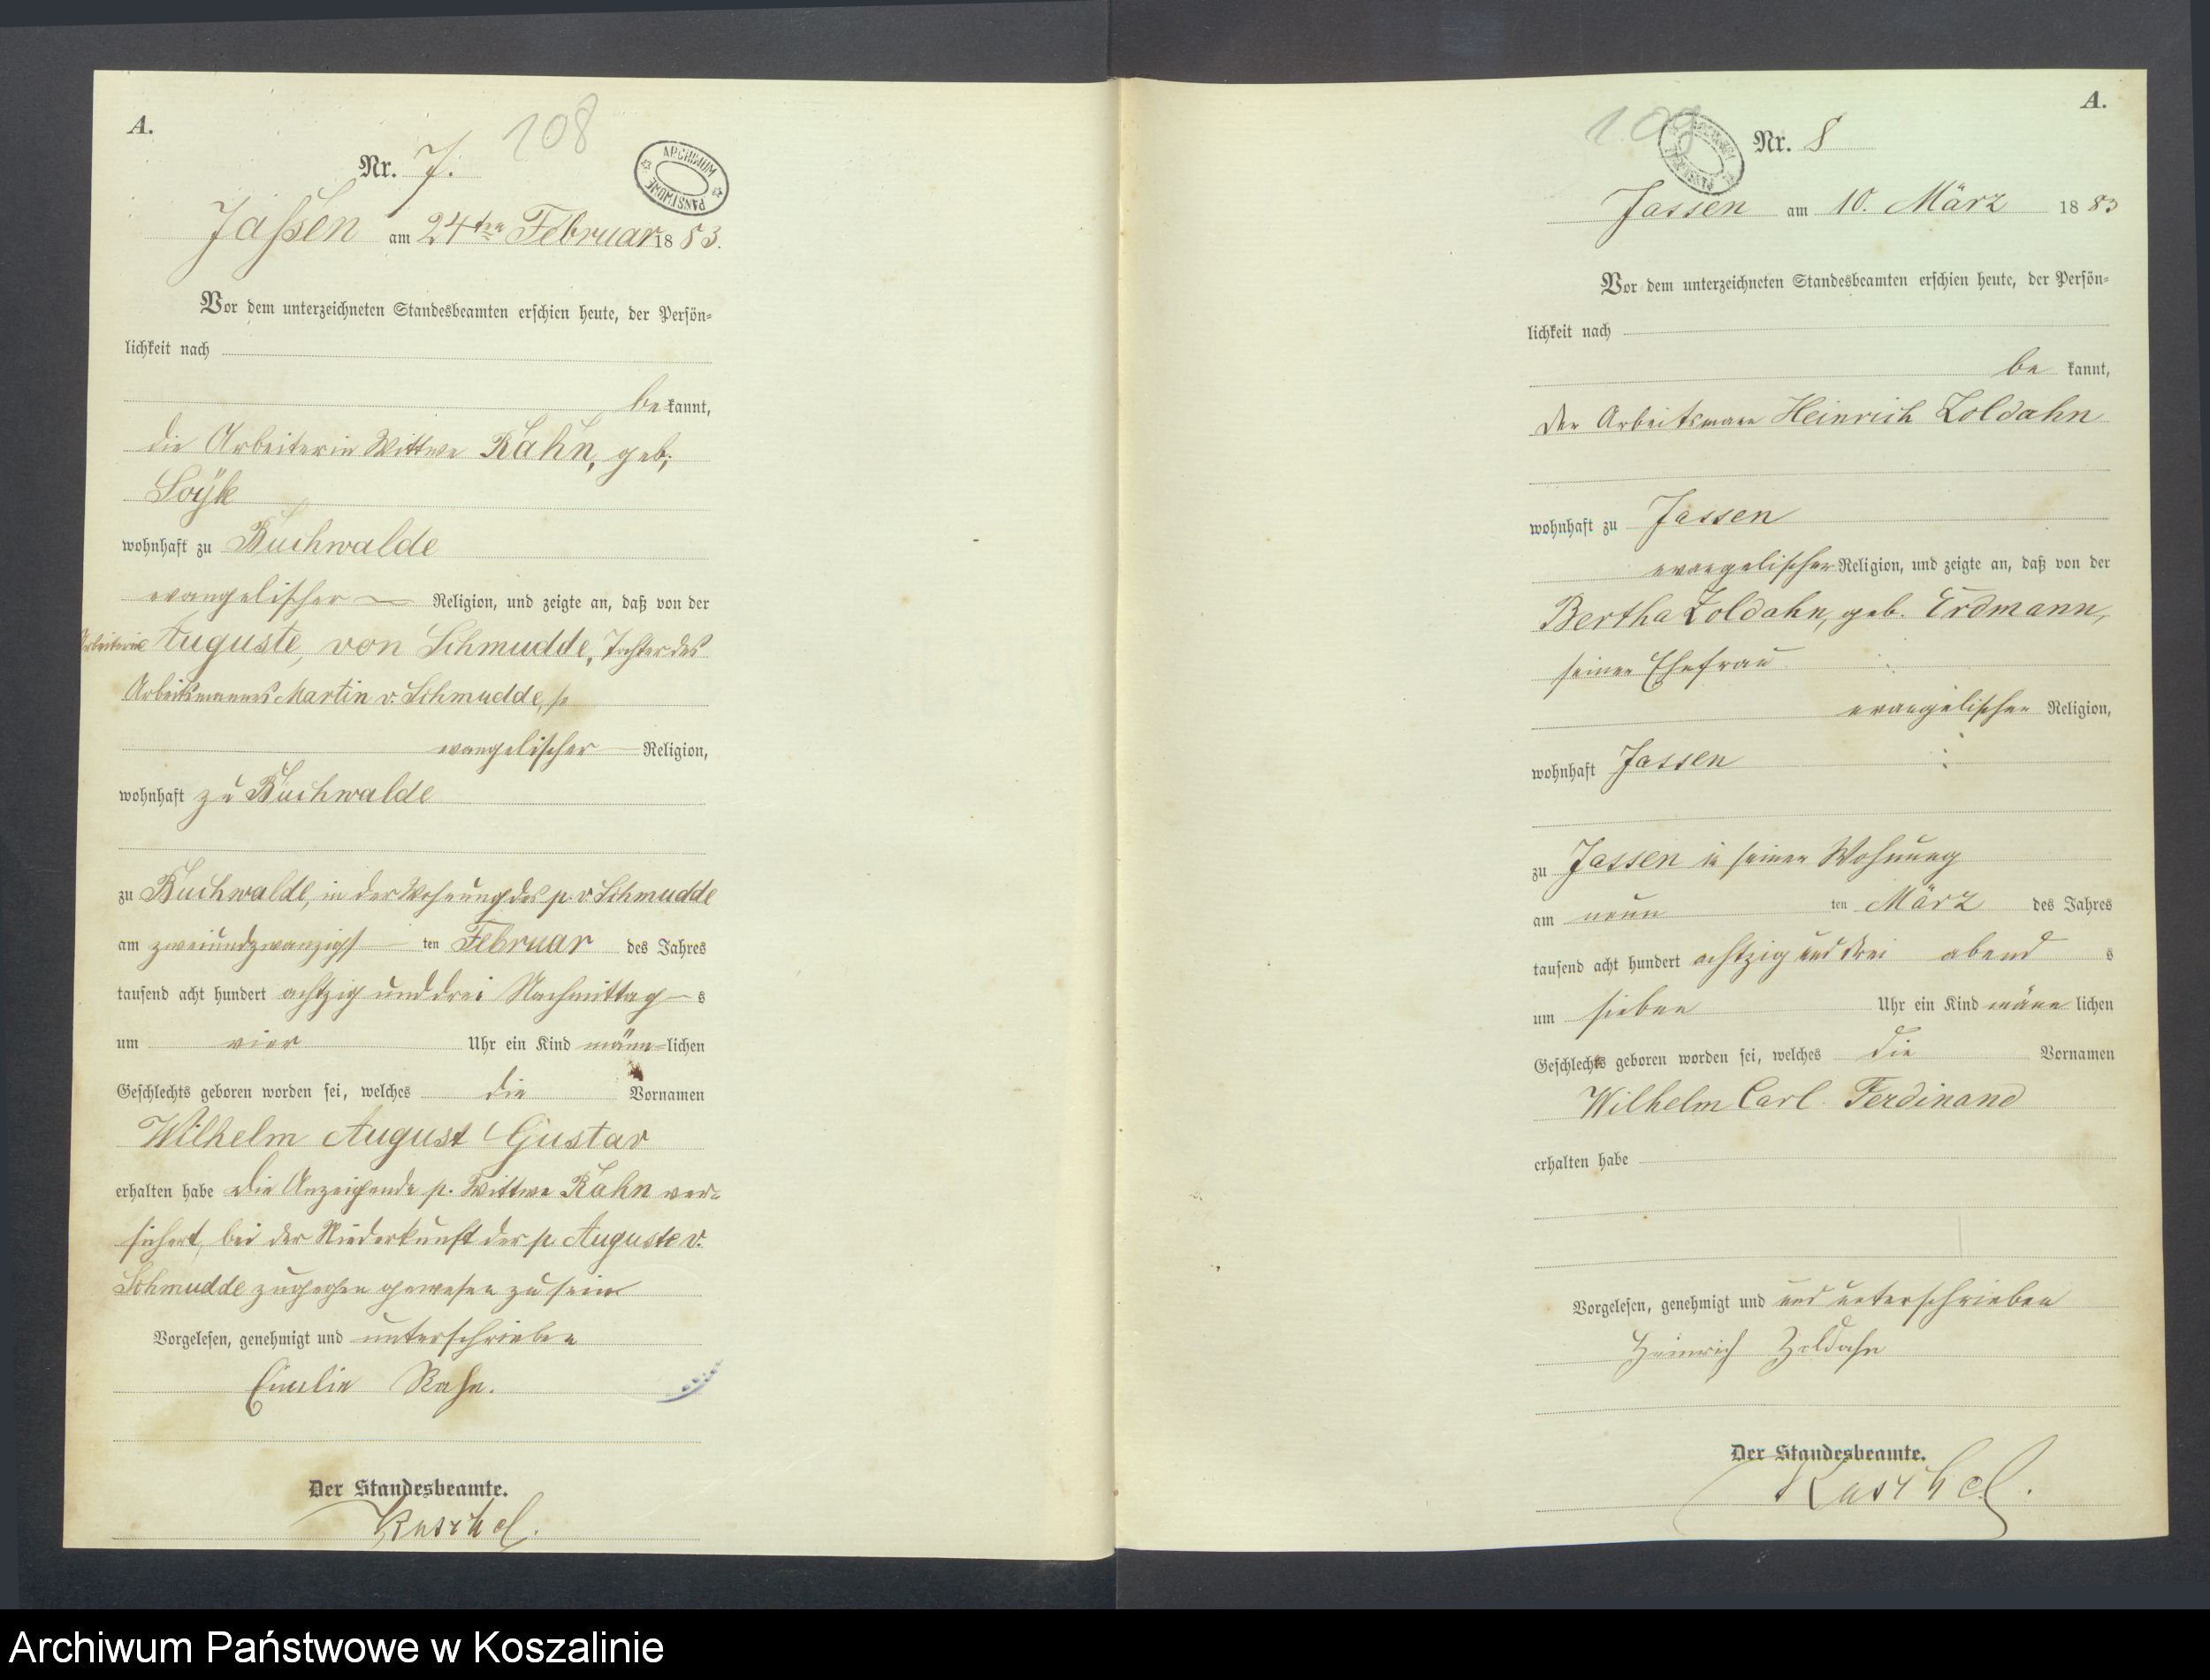 A.
108
Nr. 7.
ARCHIWUM PAŃSTWOWE
Jaßen am 24ten Februar 1883.
Vor dem unterzeichneten Standesbeamten erschien heute, der Persön-
lichkeit nach
be kannt,
die Arbeiterin Wittwe Rahn, geb,
Soÿk
wohnhaft zu Buchwalde
evangelischer Religion, und zeigte an, daß von der
Arbeiterin Auguste, von Schmudde, Tochter des
Arbeitsmannes Martin v. Schmudde,
evangelischer Religion,
wohnhaft zu Buchwalde
zu Buchwalde, in der Wohnung des p. v. Schmudde
am zweiundzwanzigst ten Februar des Jahres
tausend acht hundert achtzig und drei Nachmittag s
um vier Uhr ein Kind männ-lichen
Geschlechts geboren worden sei, welches die Vornamen
Wilhelm August Gustav
erhalten habe die Anzeigende p. Wittwe Rahn ver-
sichert, bei der Niederkunft der p. Auguste v.
Schmudde zugegen gewesen zu sein
Vorgelesen, genehmigt und unterschrieben
Emilie Rahn.
Der Standesbeamte.
Kuschel.
A.
109
Nr. 8
Jassen am 10. März 1883
Vor dem unterzeichneten Standesbeamten erschien heute, der Persön-
lichkeit nach
be kannt,
der Arbeitsmann Heinrich Zoldahn
wohnhaft zu Jassen
evangelischer Religion, und zeigte an, daß von der
Bertha Zoldahn, geb. Erdmann,
seiner Ehefrau
evangelischer Religion,
wohnhaft Jassen
zu Jassen in seiner Wohnung
am neun ten März des Jahres
tausend acht hundert achtzig und drei abend s
um sieben Uhr ein Kind männ lichen
Geschlechts geboren worden sei, welches die Vornamen
Wilhelm Carl Ferdinand
erhalten habe
Vorgelesen, genehmigt und und unterschrieben
Heinrich Zoldahn
Der Standesbeamte.
Kuschel.
Archiwum Państwowe w Koszalinie